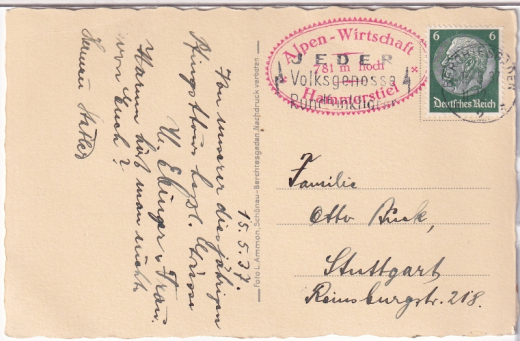 15.5.37
Von unserer diesjährigen
Pfingsttour herzl. Grüsse
H. Ebinger u. Frau.
Warum hört man nichts
von Euch?
Hermann
Foto L. Ammon, Schönau-Berchtesgaden, Nachdruck verboten
Alpen-Wirtschaft
781 m hoch
Hammerstiel
JEDER
Volksgenosse
Rundfunkhörer
6 6
Deutsches Reich
Familie
Otto Buck,
Stuttgart
Reinsburgstr. 218.